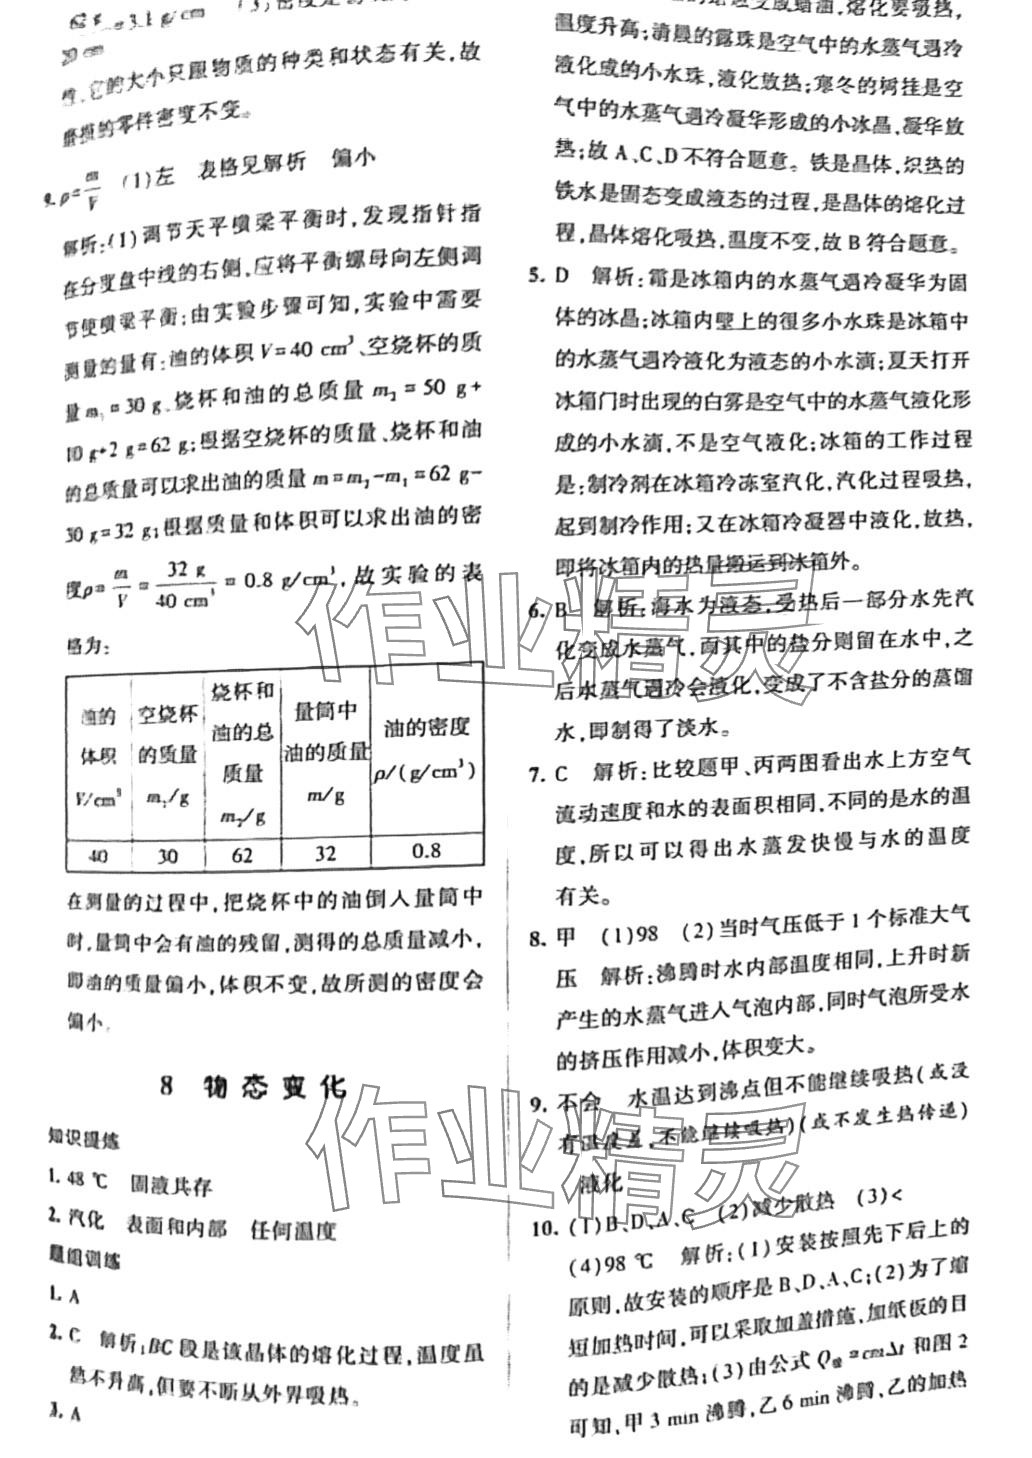 =3.1 g/cm
20 cm
性,它的大小只跟物质的种类和状态有关,故
磨损的零件密度不变。
9. ρ=m/V (1)左 表格见解析 偏小
解析:(1)调节天平横梁平衡时,发现指针指
在分度盘中线的右侧,应将平衡螺母向左侧调
节使横梁平衡;由实验步骤可知,实验中需要
测量的量有:油的体积V=40 cm³、空烧杯的质
量m₁=30 g、烧杯和油的总质量m₂=50 g+
10 g+2 g=62 g;根据空烧杯的质量、烧杯和油
的总质量可以求出油的质量m=m₂-m₁=62 g-
30 g=32 g;根据质量和体积可以求出油的密
度ρ=m/V=32 g/40 cm³=0.8 g/cm³,故实验的表
格为:
油的体积V/cm³ 空烧杯的质量m₁/g 烧杯和油的总质量m₂/g 量筒中油的质量m/g 油的密度ρ/(g/cm³)
40 30 62 32 0.8
在测量的过程中,把烧杯中的油倒入量筒中
时,量筒中会有油的残留,测得的总质量减小,
即油的质量偏小,体积不变,故所测的密度会
偏小.
8 物态变化
知识提炼
1. 48 ℃ 固液共存
2. 汽化 表面和内部 任何温度
题组训练
1. A
2. C 解析:BC段是该晶体的熔化过程,温度虽
然不升高,但要不断从外界吸热。
3. A
变成蜡油,熔化要吸热,
温度升高;清晨的露珠是空气中的水蒸气遇冷
液化成的小水珠,液化放热;寒冬的树挂是空
气中的水蒸气遇冷凝华形成的小冰晶,凝华放
热;故A、C、D不符合题意。铁是晶体,炽热的
铁水是固态变成液态的过程,是晶体的熔化过
程,晶体熔化吸热,温度不变,故B符合题意。
5. D 解析:霜是冰箱内的水蒸气遇冷凝华为固
体的冰晶;冰箱内壁上的很多小水珠是冰箱中
的水蒸气遇冷液化为液态的小水滴;夏天打开
冰箱门时出现的白雾是空气中的水蒸气液化形
成的小水滴,不是空气液化;冰箱的工作过程
是:制冷剂在冰箱冷冻室汽化,汽化过程吸热,
起到制冷作用;又在冰箱冷凝器中液化,放热,
即将冰箱内的热量搬运到冰箱外。
6. B 解析:海水为液态,受热后一部分水先汽
化变成水蒸气,而其中的盐分则留在水中,之
后水蒸气遇冷会液化,变成了不含盐分的蒸馏
水,即制得了淡水。
7. C 解析:比较题甲、丙两图看出水上方空气
流动速度和水的表面积相同,不同的是水的温
度,所以可以得出水蒸发快慢与水的温度
有关。
8. 甲 (1)98 (2)当时气压低于1个标准大气
压 解析:沸腾时水内部温度相同,上升时新
产生的水蒸气进入气泡内部,同时气泡所受水
的挤压作用减小,体积变大。
9. 不会 水温达到沸点但不能继续吸热(或没
有温度差,不能继续吸热)(或不发生热传递)
液化
10. (1)B、D、A、C (2)减少散热 (3)<
(4)98 ℃ 解析:(1)安装按照先下后上的
原则,故安装的顺序是B、D、A、C;(2)为了缩
短加热时间,可以采取加盖措施,加纸板的目
的是减少散热;(3)由公式Q吸=cmΔt和图2
可知,甲3 min沸腾,乙6 min沸腾,乙的加热
作业精灵
作业精灵